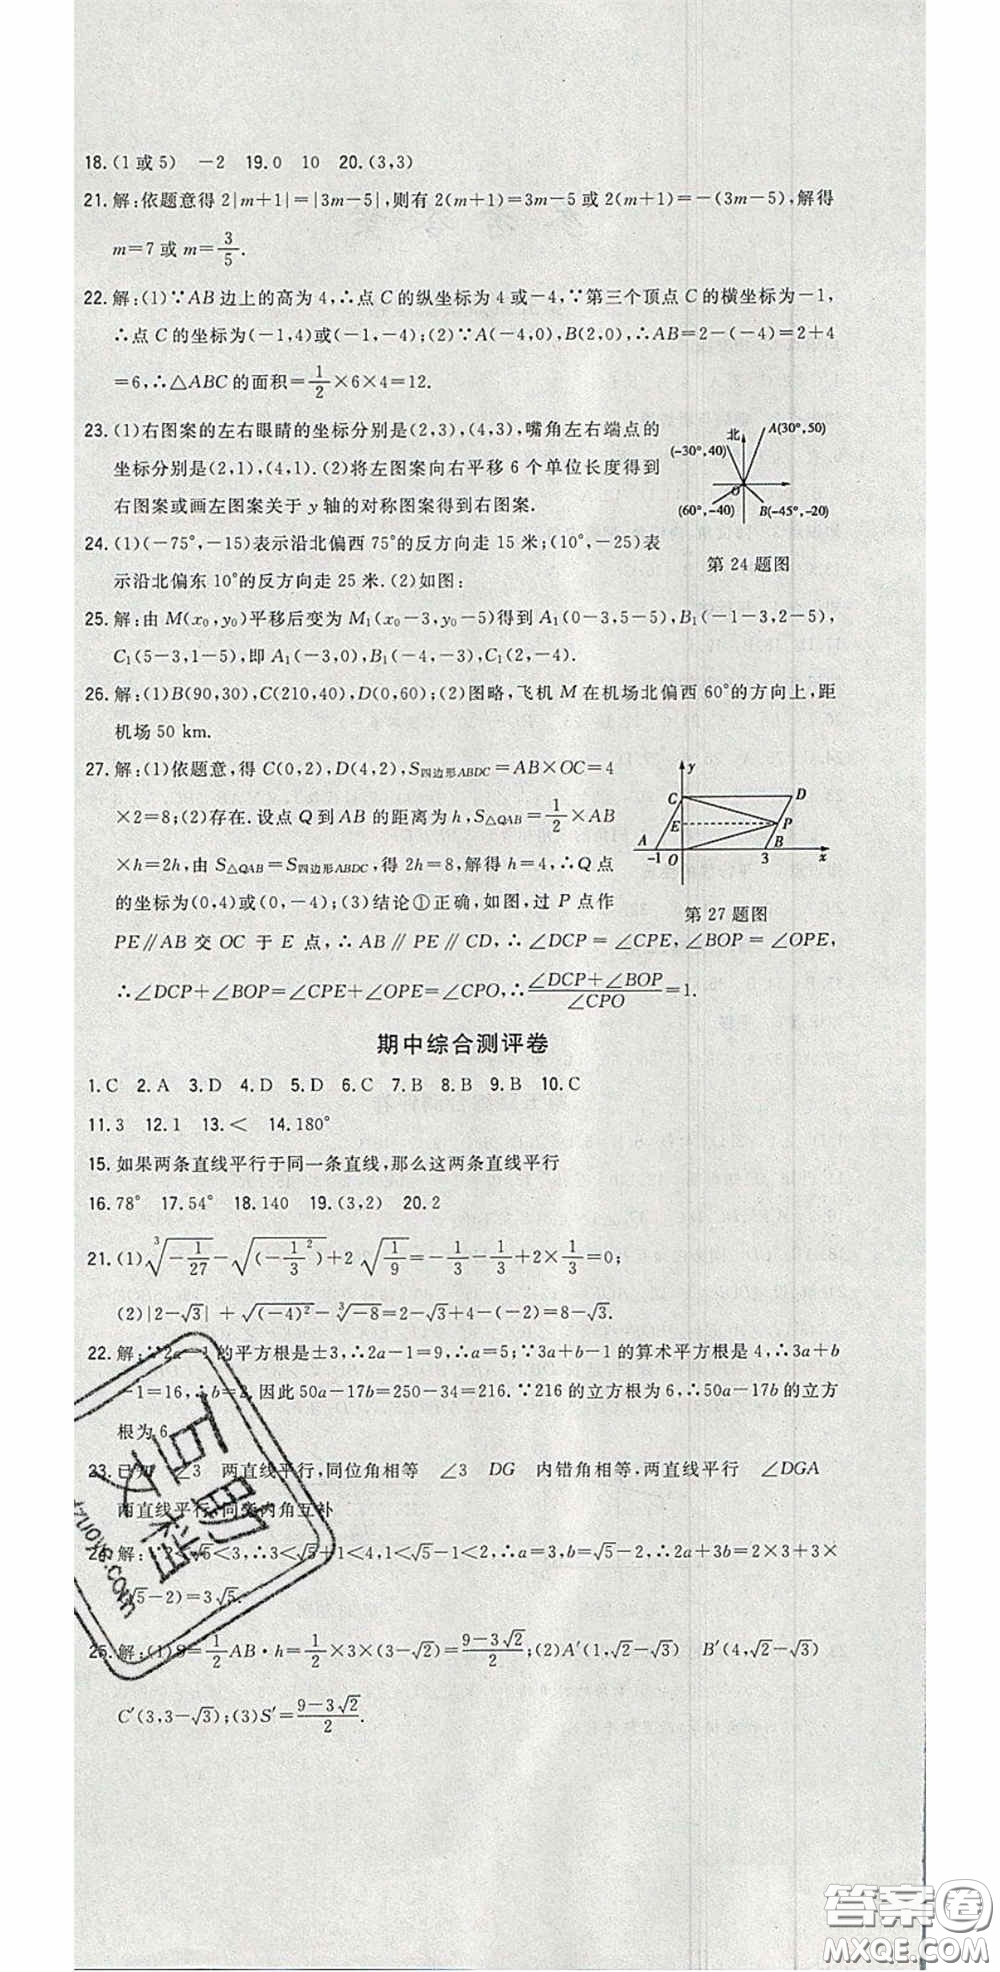 18.(1或5)　-2　19.0　10　20.(3,3)
21.解:依题意得2|m+1|=|3m-5|,则有2(m+1)=3m-5或2(m+1)=-(3m-5),解得
m=7或m=3/5.
22.解:(1)∵AB边上的高为4,∴点C的纵坐标为4或-4,∵第三个顶点C的横坐标为-1,
∴点C的坐标为(-1,4)或(-1,-4);(2)∵A(-4,0),B(2,0),∴AB=2-(-4)=2+4
=6,∴△ABC的面积=1/2×6×4=12.
23.(1)右图案的左右眼睛的坐标分别是(2,3),(4,3),嘴角左右端点的
坐标分别是(2,1),(4,1).(2)将左图案向右平移6个单位长度得到
右图案或画左图案关于y轴的对称图案得到右图案.
北
A(30°,50)
(-30°,40)
O
(60°,-40)
B(-45°,-20)
第24题图
24.(1)(-75°,-15)表示沿北偏西75°的反方向走15米;(10°,-25)表
示沿北偏东10°的反方向走25米.(2)如图:
25.解:由M(x₀,y₀)平移后变为M₁(x₀-3,y₀-5)得到A₁(0-3,5-5),B₁(-1-3,2-5),
C₁(5-3,1-5),即A₁(-3,0),B₁(-4,-3),C₁(2,-4).
26.解:(1)B(90,30),C(210,40),D(0,60);(2)图略,飞机M在机场北偏西60°的方向上,距
机场50 km.
27.解:(1)依题意,得C(0,2),D(4,2),S四边形ABDC=AB×OC=4
×2=8;(2)存在.设点Q到AB的距离为h,S△QAB=1/2×AB
×h=2h,由S△QAB=S四边形ABDC,得2h=8,解得h=4,∴Q点
的坐标为(0,4)或(0,-4);(3)结论①正确,如图,过P点作
y
C
D
E
P
A
B
-1
O
3
x
第27题图
PE∥AB交OC于E点,∴AB∥PE∥CD,∴∠DCP=∠CPE,∠BOP=∠OPE,
∴∠DCP+∠BOP=∠CPE+∠OPE=∠CPO,∴(∠DCP+∠BOP)/∠CPO=1.
期中综合测评卷
1.C　2.A　3.D　4.D　5.D　6.C　7.B　8.B　9.B　10.C
11.3　12.1　13.<　14.180°
15.如果两条直线平行于同一条直线,那么这两条直线平行
16.78°　17.54°　18.140　19.(3,2)　20.2
21.(1)∛(-1/27)-√((-1/3)²)+2√(1/9)=-1/3-1/3+2×1/3=0;
(2)|2-√3|+√((-4)²)-∛(-8)=2-√3+4-(-2)=8-√3.
22.解:∵2a-1的平方根是±3,∴2a-1=9,∴a=5;∵3a+b-1的算术平方根是4,∴3a+b
-1=16,∴b=2.因此50a-17b=250-34=216.∵216的立方根为6,∴50a-17b的立方
根为6.
23.已知　∠3　两直线平行,同位角相等　∠3　DG　内错角相等,两直线平行　∠DGA
两直线平行,同旁内角互补
24.解:∵2<√5<3,∴3<√5+1<4,1<√5-1<2,∴a=3,b=√5-2,∴2a+3b=2×3+3×
(√5-2)=3√5.
25.解:(1)S=1/2AB·h=1/2×3×(3-√2)=(9-3√2)/2;(2)A′(1,√2-√3)　B′(4,√2-√3)
C′(3,3-√3);(3)S′=(9-3√2)/2.
答案圈
MXQE.COM